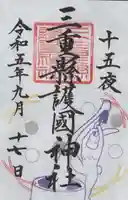 十五夜
三重縣護國神社
令和五年九月十七日